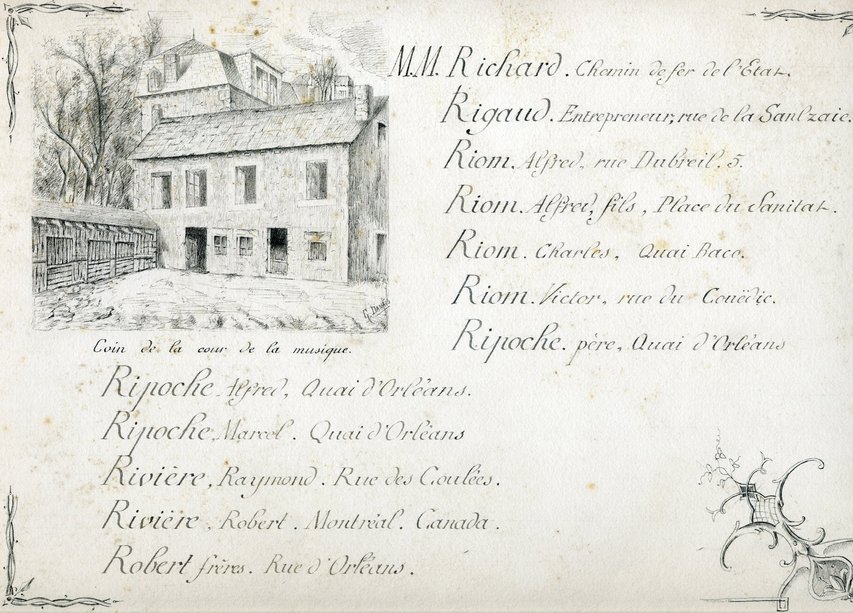 M.M. Richard. Chemin de fer de l'Etat.
Rigaud. Entrepreneur, rue de la Sanlzaie.
Riom. Alfred, rue Dubreil, 5.
Riom. Alfred, fils, Place du Sanitat.
Riom. Charles, Quai Baco.
Riom. Victor, rue du Couëdic.
Ripoche. père, Quai d'Orléans
Coin de la cour de la musique.
Ripoche. Alfred, Quai d'Orléans.
Ripoche, Marcel. Quai d'Orléans
Rivière, Raymond. Rue des Coulées.
Rivière, Robert. Montréal. Canada.
Robert frères. Rue d'Orléans.